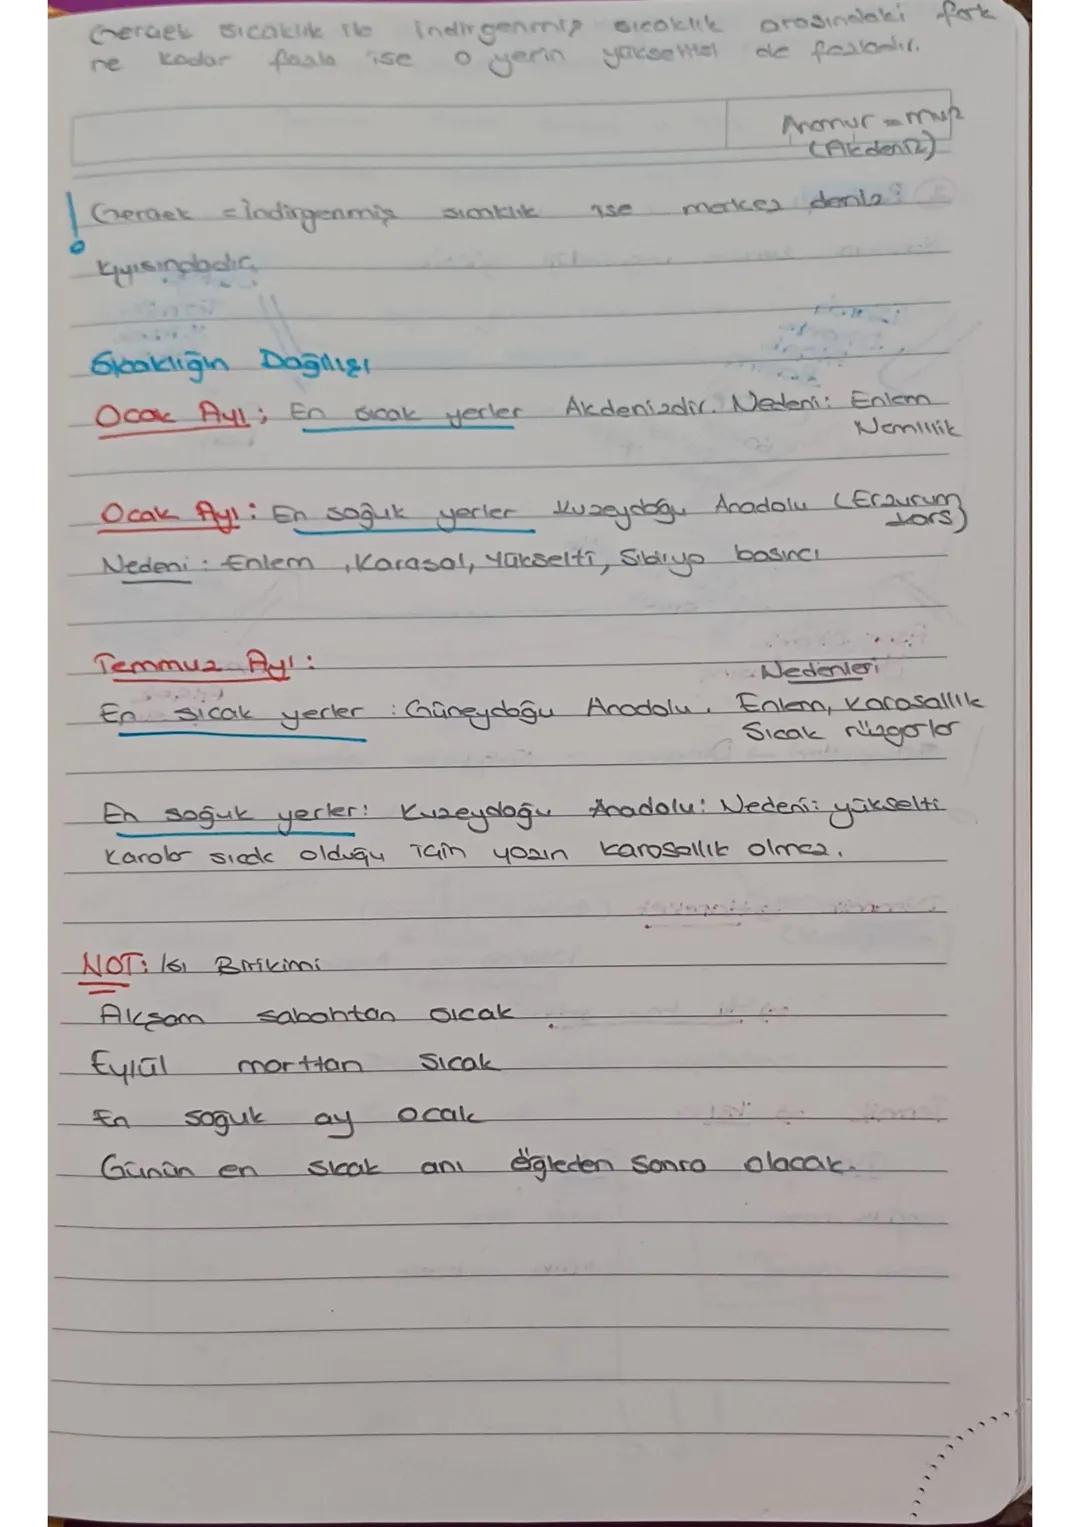 Gerçek sıcaklık ile indirgenmiş sıcaklık arasındaki fark
ne kadar fazla ise o yerin yükseltisi de fazladır.
Anamur = muz
(Akdeniz)
! Gerçek = indirgenmiş sıcaklık ise merkez deniz
kıyısındadır.
Sıcaklığın Dağılışı
Ocak Ayı; En sıcak yerler Akdenizdir. Nedeni: Enlem
Nemlilik
Ocak Ayı: En soğuk yerler Kuzeydoğu Anadolu (Erzurum
Kars)
Nedeni: Enlem, Karasal, Yükselti, Sibirya basıncı
Temmuz Ayı:
Nedenleri
En sıcak yerler: Güneydoğu Anadolu. Enlem, Karasallık
Sıcak rüzgarlar
En soğuk yerler: Kuzeydoğu Anadolu: Nedeni: yükselti
Karalar sıcak olduğu için yazın karasallık olmaz.
NOT: Isı Birikimi
Akşam sabahtan sıcak
Eylül marttan sıcak
En soğuk ay ocak
Günün en sıcak anı öğleden sonra olacak.